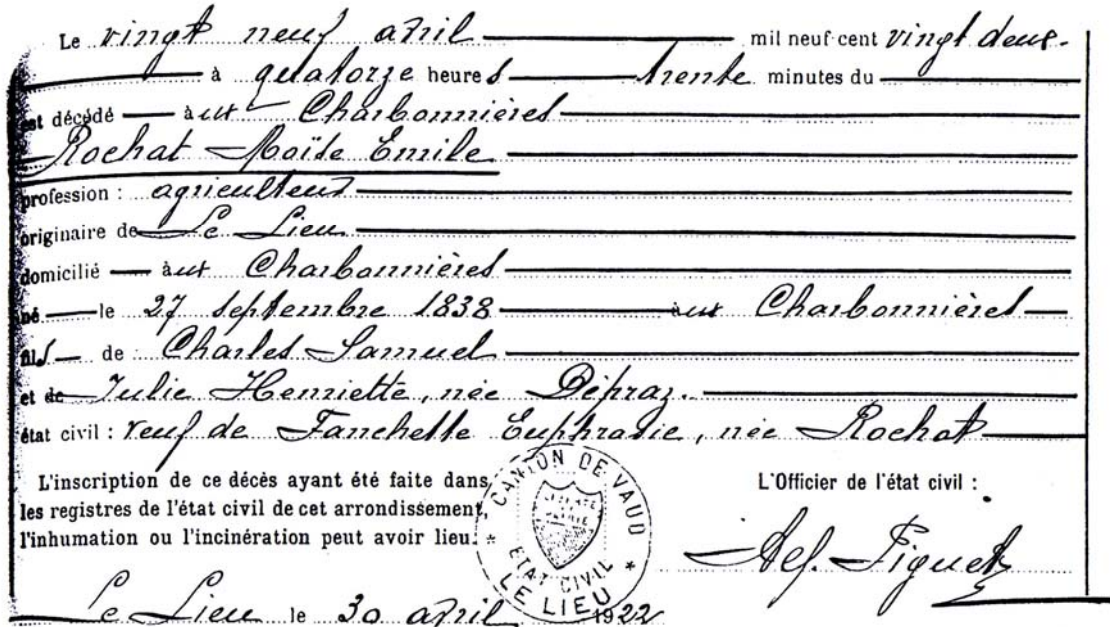 Le vingt neuf avril mil neuf cent vingt deux.
à quatorze heures trente minutes du
est décédé aux Charbonnières
Rochat Moïse Emile
profession : agriculteur
originaire de Le Lieu
domicilié aux Charbonnières
né le 27 septembre 1838 aux Charbonnières
fils de Charles Samuel
et de Julie Henriette, née Dépraz.
état civil : veuf de Fanchette Euphrasie, née Rochat
L'inscription de ce décès ayant été faite dans
les registres de l'état civil de cet arrondissement,
l'inhumation ou l'incinération peut avoir lieu.
CANTON DE VAUD
LIBERTÉ ET PATRIE
ETAT CIVIL
LE LIEU
L'Officier de l'état civil :
Piguet
Le Lieu le 30 avril 1922